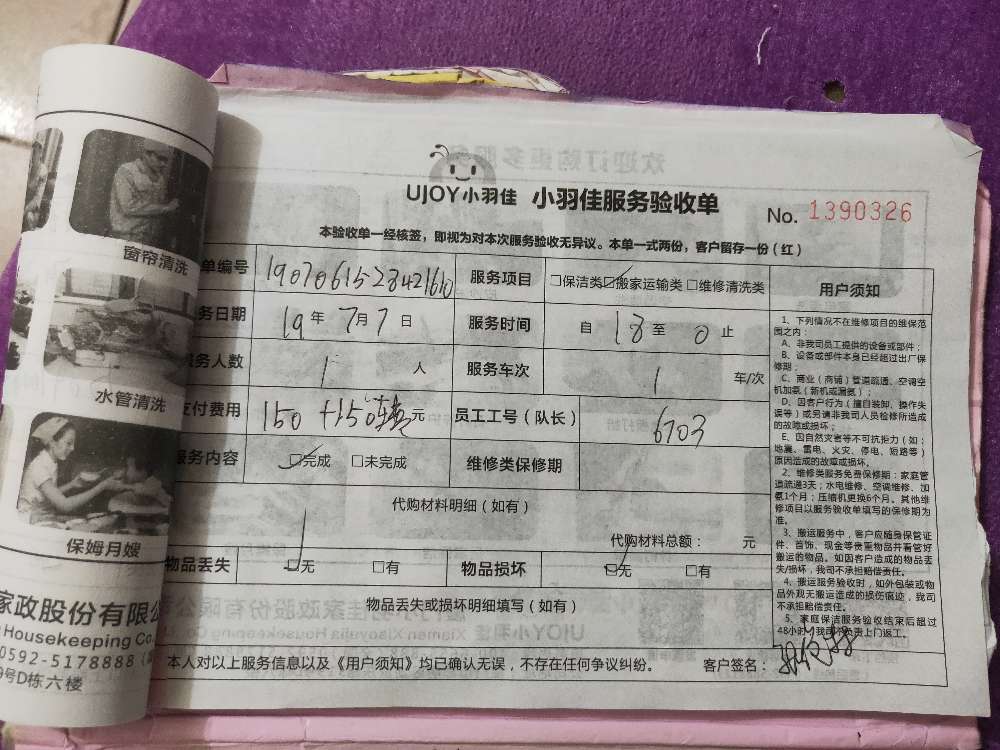 UJOY小羽佳 小羽佳服务验收单 No. 1390326
本验收单一经核签，即视为对本次服务验收无异议。本单一式两份，客户留存一份（红）
单编号 服务项目 □保洁类☑搬家运输类□维修清洗类
务日期 19年7月7日 服务时间 自18至0止
服务人数 1人 服务车次 1车/次
支付费用 150+150 元 员工工号（队长） 6703
服务内容 ☑完成 □未完成 维修类保修期
代购材料明细（如有）
代购材料总额： 元
物品丢失 ☑无 □有 物品损坏 ☑无 □有
物品丢失或损坏明细填写（如有）
本人对以上服务信息以及《用户须知》均已确认无误，不存在任何争议纠纷。 客户签名：
用户须知
1、下列情况不在维修项目的维保范
围之内：
A、非我司员工提供的设备或部件；
B、设备或部件本身已经超过出厂保
修期；
C、商业（商铺）管道疏通、空调空
机加氨（新机或漏氨）；
D、因客户行为（擅自装卸、操作失
误等）或另请非我司人员检修所造成
的故障或损坏；
E、因自然灾害等不可抗拒力（如：
地震、雷电、火灾、停电、短路等）
原因造成的故障或损坏。
2、维修类服务免费保修期：家庭管
道疏通3天；水电维修、空调维修、加
氨1个月；压缩机更换6个月。其他维
修项目以服务验收单填写的保修期为
准。
3、搬运服务中，客户应随身保管证
件、首饰、现金等贵重物品并看管好
搬运的物品。如因客户造成的物品丢
失/损坏，我司不承担赔偿责任。
4、搬运服务验收时，如外包装或物
品外观无搬运造成的损伤痕迹，我司
不承担赔偿责任。
5、家庭保洁服务验收结束后超过
48小时，我司不负责上门返工。
窗帘清洗
水管清洗
保姆月嫂
家政股份有限公
Housekeeping Co.
0592-5178888
9号D栋六楼